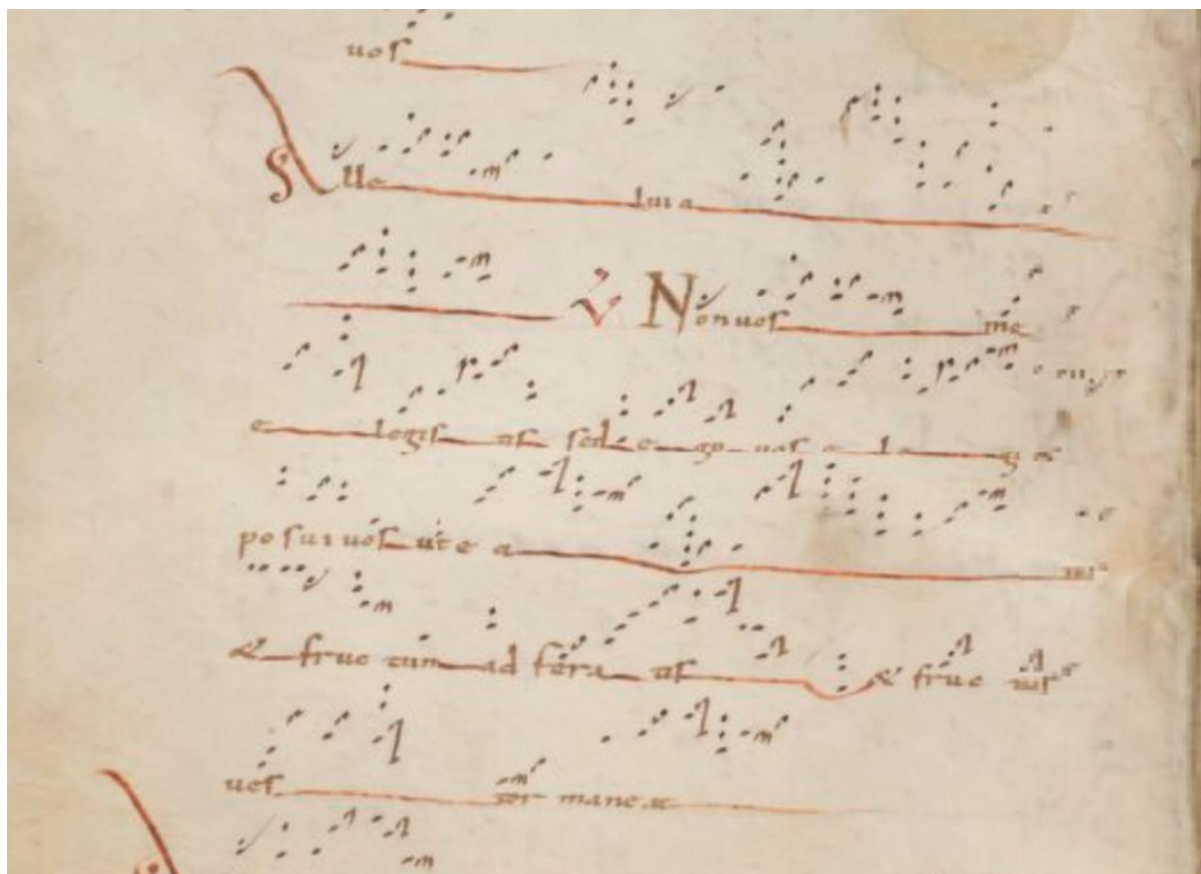 uos
Alle luia
V Non uos me
e legis tis sed e go uos e le gi et
po sui uos ut e a tis
& fruc tum ad fera tis & fruc tus
ues ter mane at